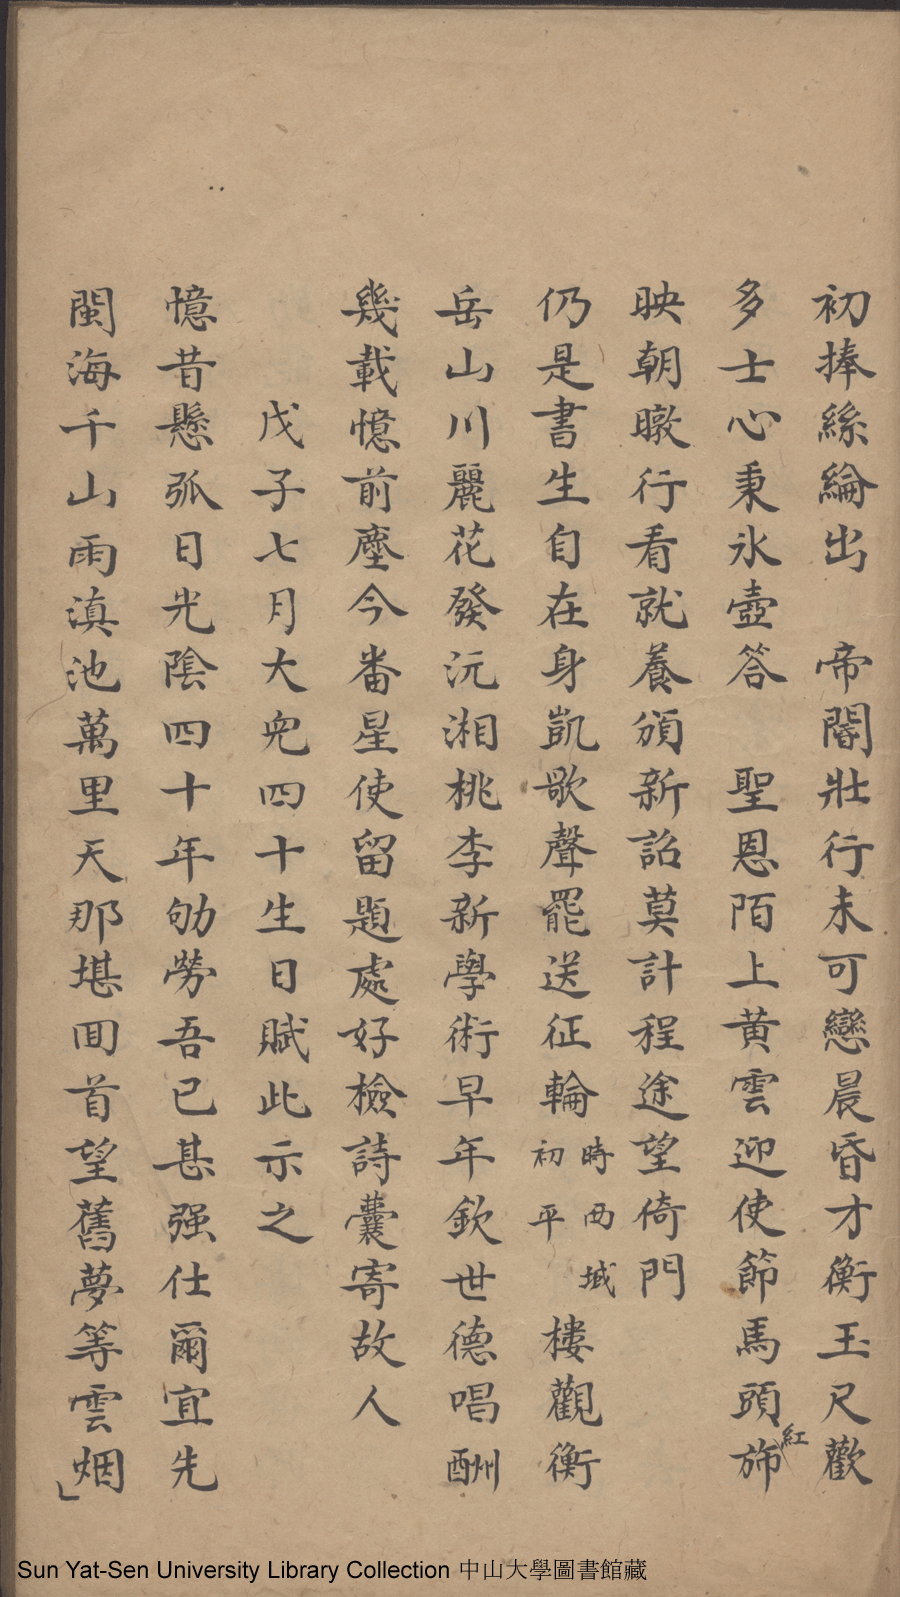 初捧絲綸出　帝閽壯行未可戀晨昏才衡玉尺歡
多士心秉氷壺答　聖恩陌上黄雲迎使節馬頭紅斾
映朝暾行看就養頒新詔莫計程途望倚門
仍是書生自在身凱歌聲罷送征輪時西域初平樓觀衡
岳山川麗花發沅湘桃李新學術早年欽世德唱酬
幾載憶前塵今番星使留題處好檢詩囊寄故人
戊子七月大兒四十生日賦此示之
憶昔懸弧日光陰四十年劬勞吾已甚强仕爾宜先
閩海千山雨滇池萬里天那堪囬首望舊夢等雲烟
Sun Yat-Sen University Library Collection 中山大學圖書館藏